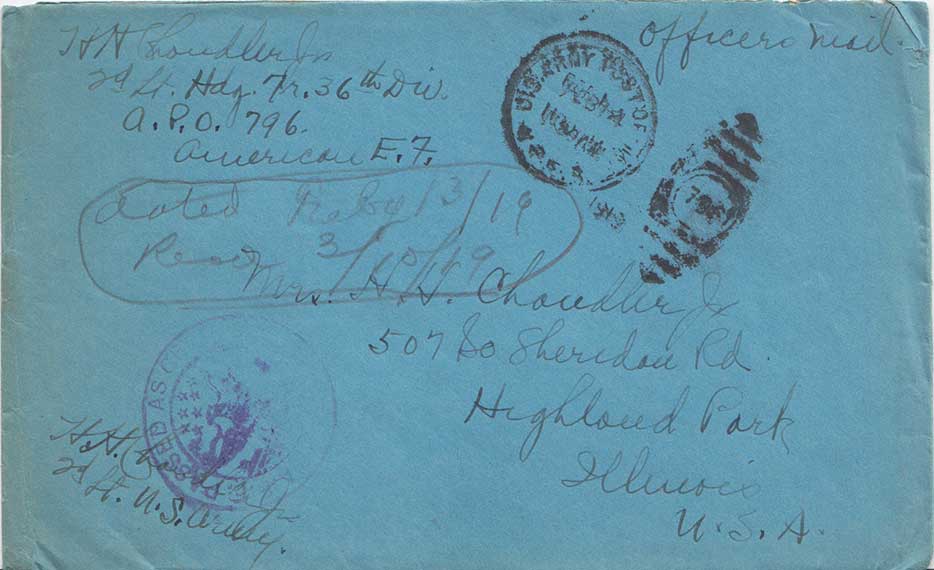 H H Chandler Jr
2d Lt. Hdq. Tr. 36th Div.
A.P.O. 796.
American E.F.
Officers Mail.
U.S. ARMY POST OF
796
dated Feby 13/19
Recd 3/10/19
Mrs. H. H. Chandler Jr
507 So Sheridan Rd.
Highland Park
Illinois
U.S.A.
SSED AS
H.H. Chandler Jr
2d Lt. U.S. Army.